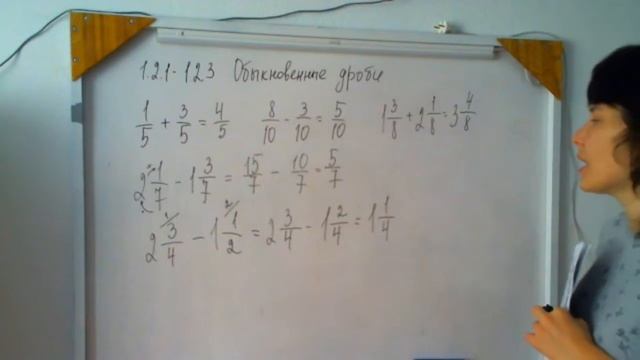 1.2.1 - 1.2.3 Обыкновенные дроби
1/5 + 3/5 = 4/5 8/10 - 3/10 = 5/10 1 3/8 + 2 1/8 = 3 4/8
2 1/7 - 1 3/7 = 15/7 - 10/7 = 5/7
2 3/4 - 1 1/2 = 2 3/4 - 1 2/4 = 1 1/4